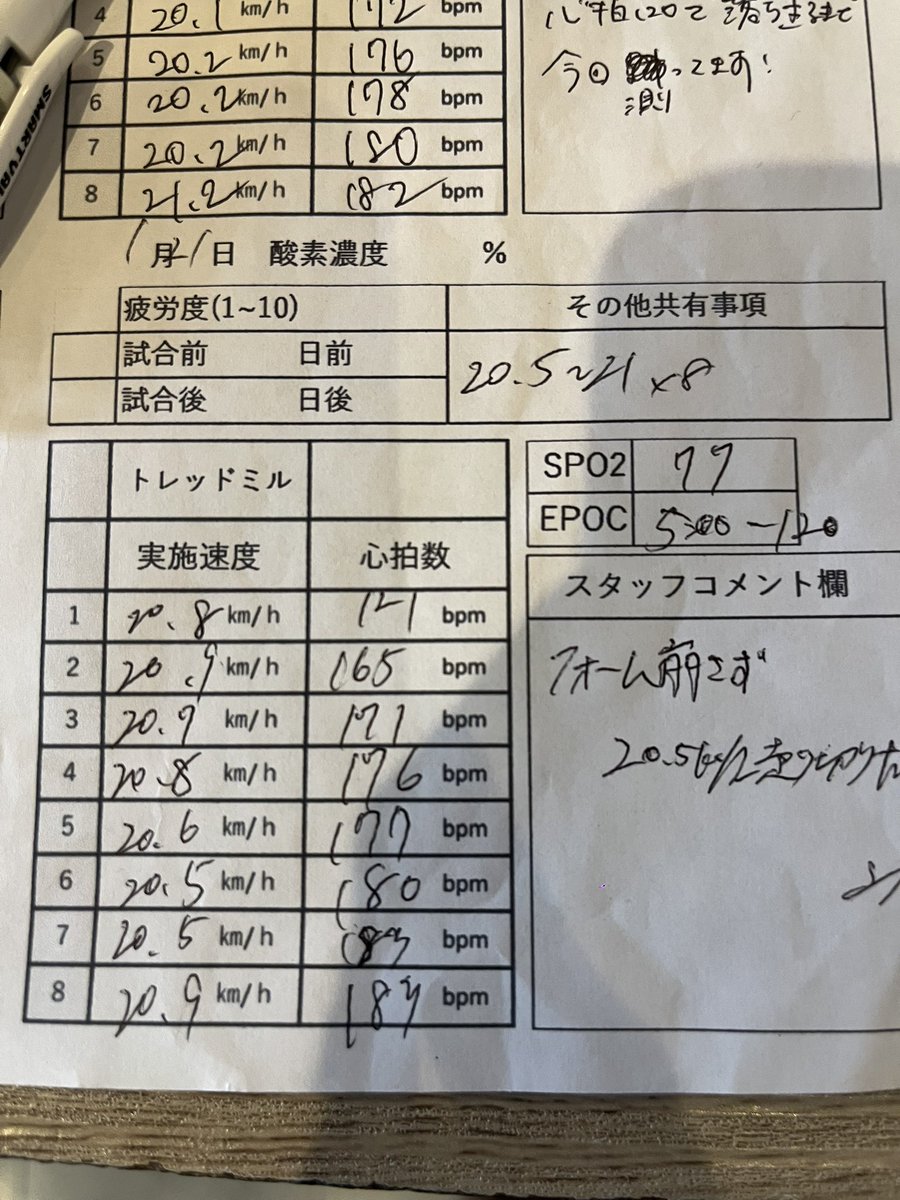 4 20.1 km/h 172 bpm
5 20.2 km/h 176 bpm
6 20.2 km/h 178 bpm
7 20.2 km/h 180 bpm
8 21.2 km/h 182 bpm
心拍120で落ちるまで
今回 ってます!
測
1月21日 酸素濃度 %
疲労度(1~10) その他共有事項
試合前 日前
試合後 日後
20.5~21 ×8
トレッドミル
実施速度 心拍数
1 20.8 km/h 121 bpm
2 20.9 km/h 165 bpm
3 20.9 km/h 171 bpm
4 20.8 km/h 176 bpm
5 20.6 km/h 177 bpm
6 20.5 km/h 180 bpm
7 20.5 km/h 183 bpm
8 20.9 km/h 183 bpm
SPO2 77
EPOC
スタッフコメント欄
フォーム崩さず
20.5